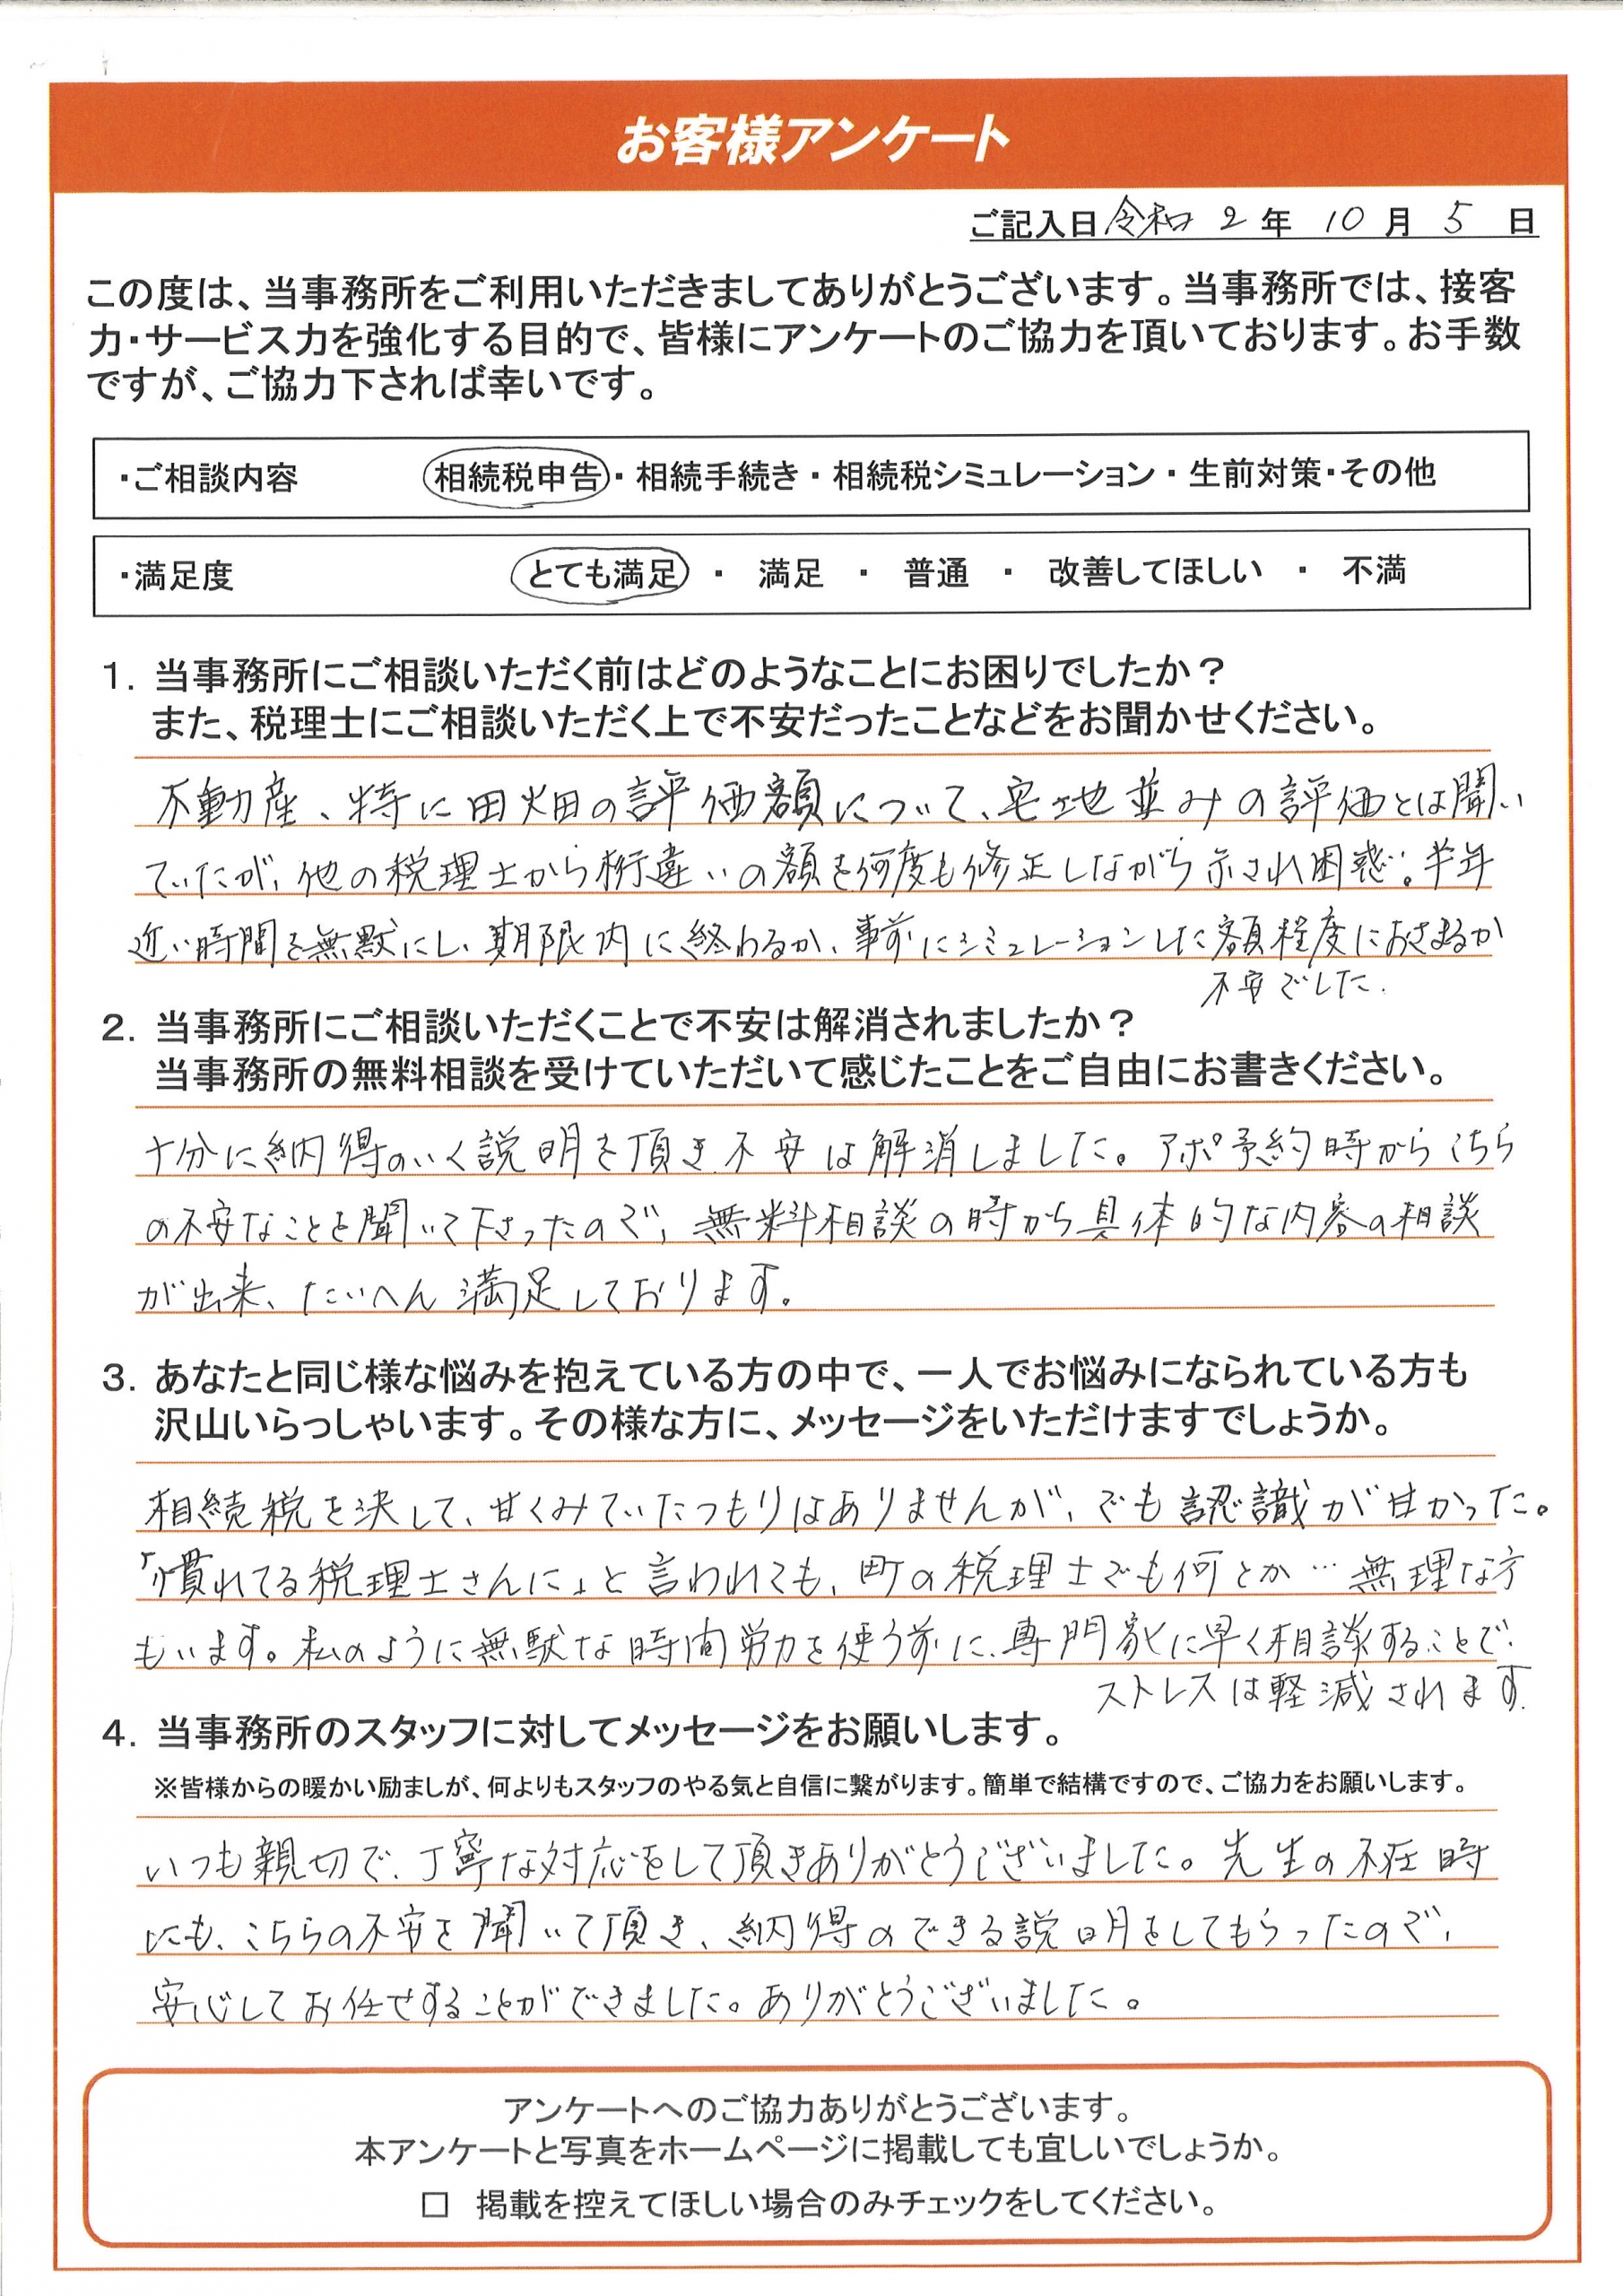 お客様アンケート
ご記入日 令和 2 年 10 月 5 日
この度は、当事務所をご利用いただきましてありがとうございます。当事務所では、接客
力・サービス力を強化する目的で、皆様にアンケートのご協力を頂いております。お手数
ですが、ご協力下されば幸いです。
・ご相談内容 相続税申告・相続手続き・相続税シミュレーション・生前対策・その他
・満足度 とても満足 ・ 満足 ・ 普通 ・ 改善してほしい ・ 不満
1. 当事務所にご相談いただく前はどのようなことにお困りでしたか？
また、税理士にご相談いただく上で不安だったことなどをお聞かせください。
不動産、特に田畑の評価額について、宅地並みの評価とは聞い
ていたが、他の税理士から桁違いの額を何度も修正しながら示され困惑。半年
近い時間を無駄にし、期限内に終わるか、事前にシミュレーションした額程度におさまるか
不安でした.
2. 当事務所にご相談いただくことで不安は解消されましたか？
当事務所の無料相談を受けていただいて感じたことをご自由にお書きください。
十分に納得のいく説明を頂き不安は解消しました。アポ予約時からこちら
の不安なことを聞いて下さったので、無料相談の時から具体的な内容の相談
が出来、たいへん満足しております。
3. あなたと同じ様な悩みを抱えている方の中で、一人でお悩みになられている方も
沢山いらっしゃいます。その様な方に、メッセージをいただけますでしょうか。
相続税を決して、甘くみていたつもりはありませんが、でも認識が甘かった。
「慣れてる税理士さんに」と言われても、町の税理士でも何とか…無理な方
もいます。私のように無駄な時間労力を使う前に、専門家に早く相談することで、
ストレスは軽減されます.
4. 当事務所のスタッフに対してメッセージをお願いします。
※皆様からの暖かい励ましが、何よりもスタッフのやる気と自信に繋がります。簡単で結構ですので、ご協力をお願いします。
いつも親切で、丁寧な対応をして頂きありがとうございました。先生の不在時
にも、こちらの不安を聞いて頂き、納得のできる説明をしてもらったので、
安心してお任せすることができました。ありがとうございました。
アンケートへのご協力ありがとうございます。
本アンケートと写真をホームページに掲載しても宜しいでしょうか。
□ 掲載を控えてほしい場合のみチェックをしてください。